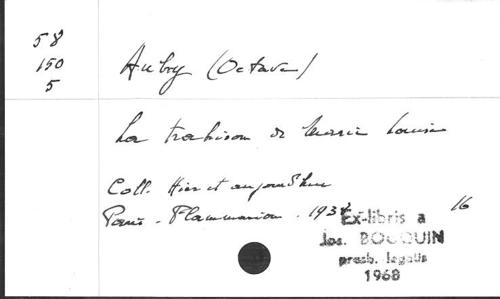 58
150
5
Aubry (Octave)
La trahison de Marie Louise
Coll. Hier et aujourd'hui
Paris - Flammarion - 193
16
Ex-libris a
Jos. BOUQUIN
presb. legatis
1968